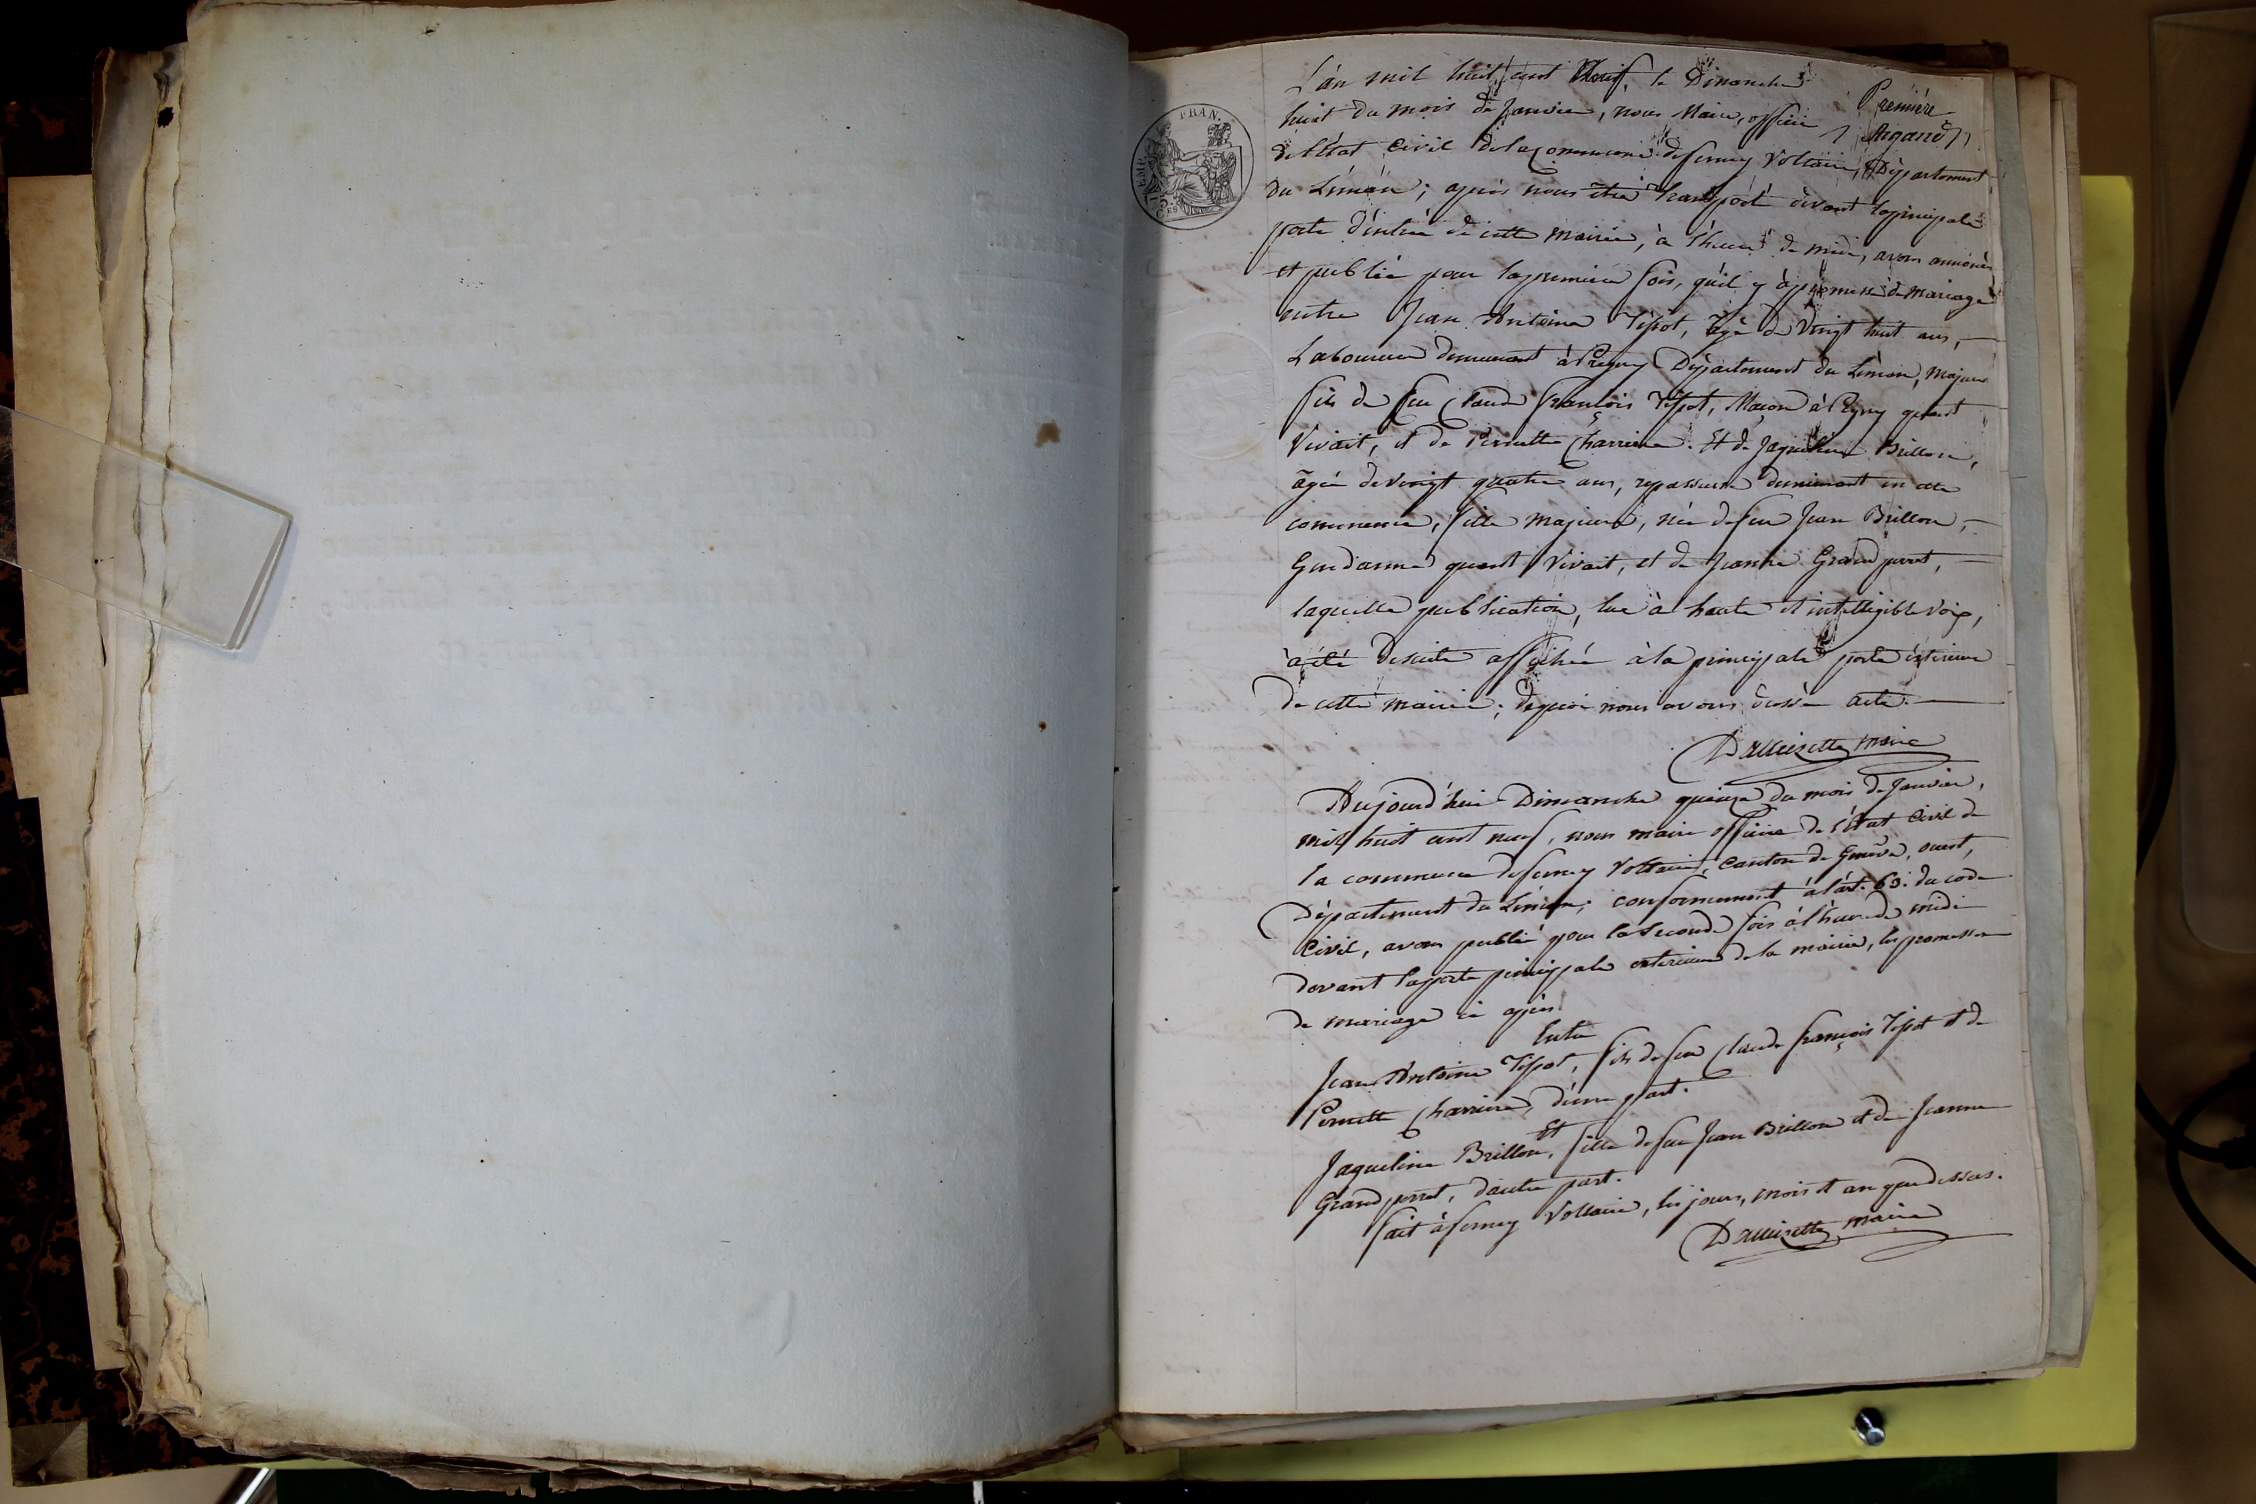 L'an mil huit cent Neuf, le Dimanche
Première
huit du mois de Janvier, nous Maire, officier
de l'état civil de la Commune de ferney Voltaire, Département
du Léman; après nous être transporté devant la principale
porte d'entrée de cette Mairie, à l'heure de midi, avons annoncé
et publié pour la premiere fois, qu'il y à promesse de mariage
entre Jean Antoine Tissot, âgé de Vingt huit ans,
Laboureur demeurant à Pregny Département du Léman, majeur
fils de feu Claude François Tissot, Maçon à Pregny quand
Vivait, et de Pernette Charriere. Et de Jaqueline Brillon,
âgée de vingt quatre ans, repasseuse demeurant en cette
commune, fille majeure, née de feu Jean Brillon,
Gendarme quand Vivait, et de Jeanne Grandperret,
laquelle publication, lue à haute et intelligible voix,
à été de suite affichée à la principale porte extérieure
de cette mairie; de quoi nous avons dressé acte.
maire
Aujourd'hui Dimanche quinze du mois de Janvier,
mil huit cent neuf, nous maire officier de l'état Civil de
la commune de ferney Voltaire, Canton de Genève, ouest,
Département du Léman; conformement à l'art. 63. du code
Civil, avons publié pour la seconde fois à l'heure de midi
devant la porte principale exterieure de la mairie, les promesses
de mariage ci après.
Entre
Jean Antoine Tissot, fils de feu Claude françois Tissot et de
Pernette Charriere, d'une part.
Et
Jaqueline Brillon, fille de feu Jean Brillon et de Jeanne
Grandperret, d'autre part.
fait à ferney Voltaire, les jours, mois et an que dessus.
maire